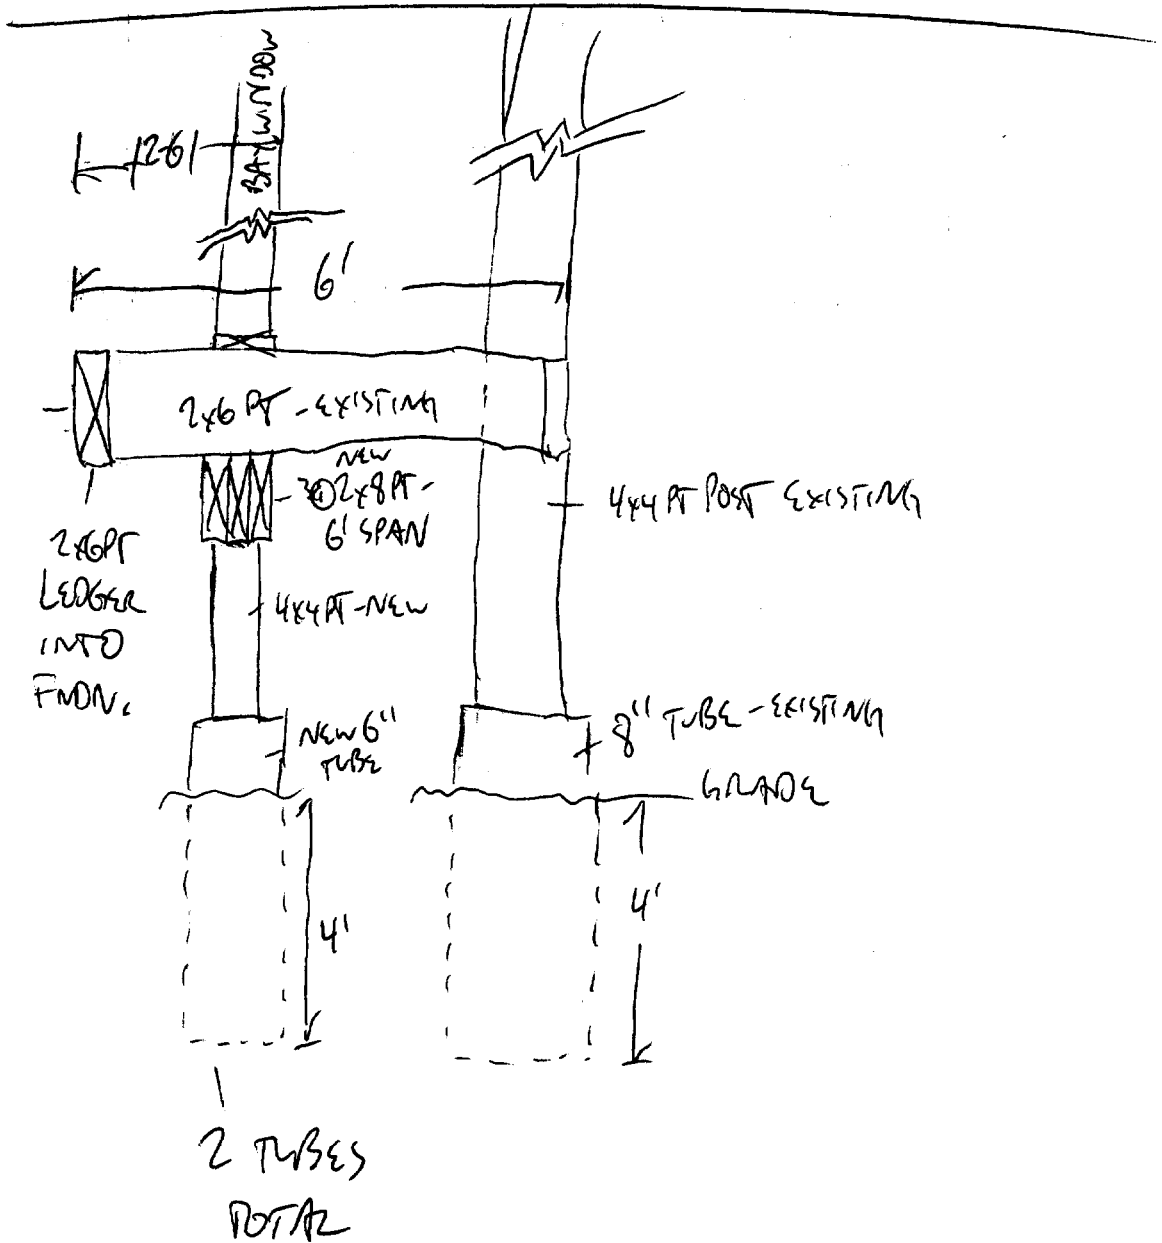 BAY WINDOW
2-6
6'
2x6 PT - EXISTING
NEW
3 2x8 PT -
6' SPAN
4x4 PT POST EXISTING
2x6 PT
LEDGER
INTO
FNDN.
4x4 PT - NEW
NEW 6"
TUBE
8" TUBE - EXISTING
GRADE
4'
4'
2 TUBES
TOTAL